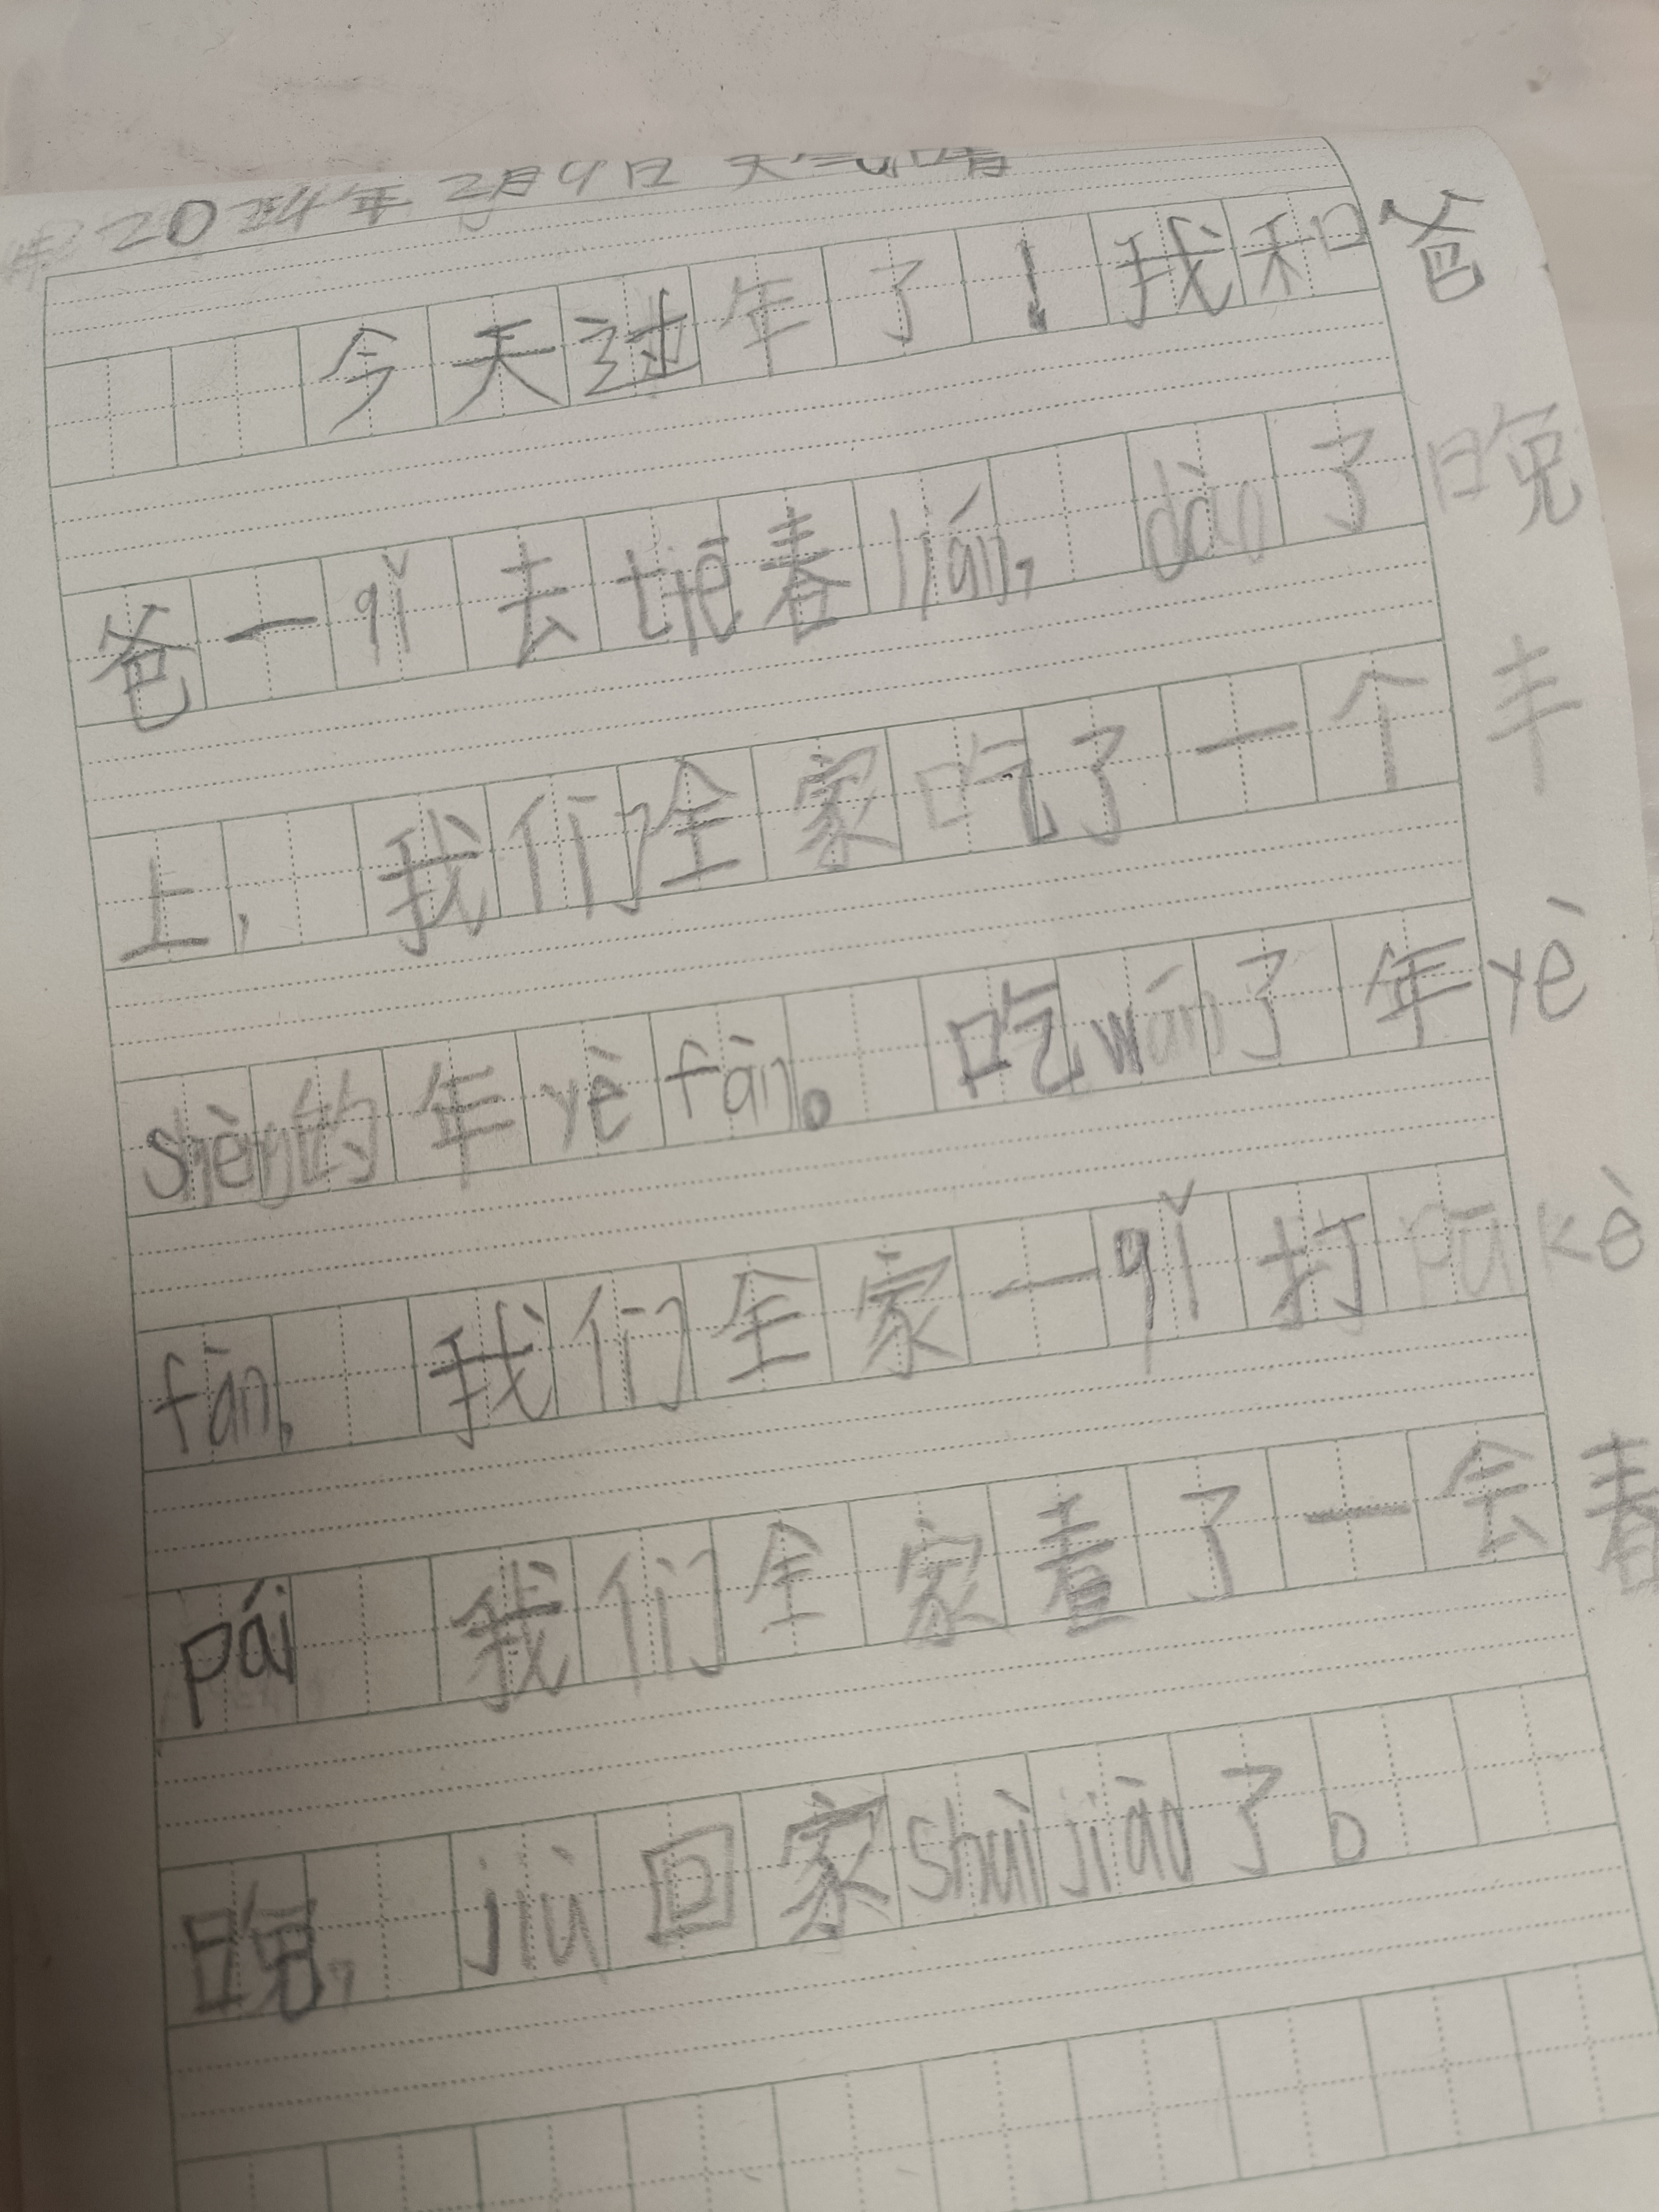 2024年2月9日 天气晴
今天过年了！我和爸
爸一qǐ去tiē春lián，dào了晚
上，我们全家吃了一个丰
shèng的年yè fàn。吃wán了年yè
fàn，我们全家一qǐ打pū kè
pái 我们全家看了一会春
晚，jiù回家shuì jiào了。